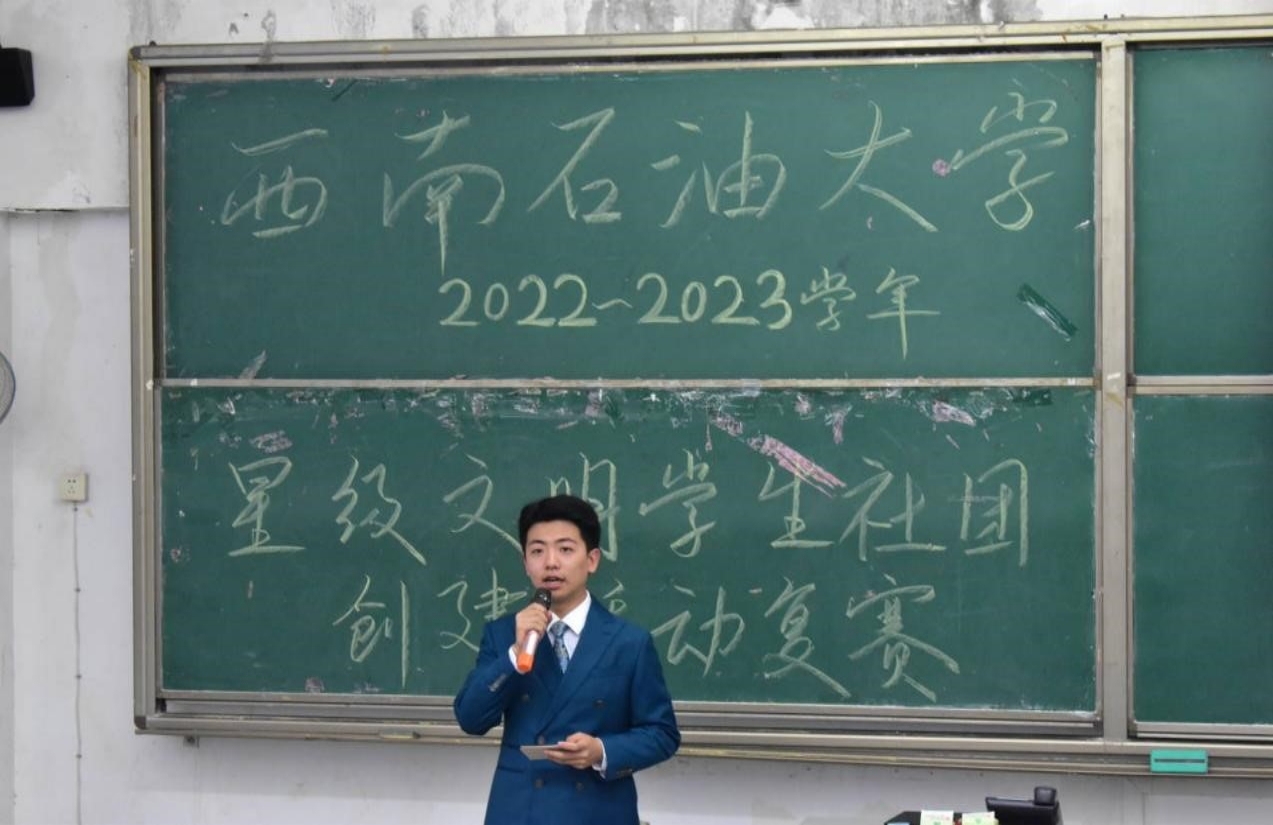 西南石油大学
2022~2023学年
星级文明学生社团
创建活动复赛